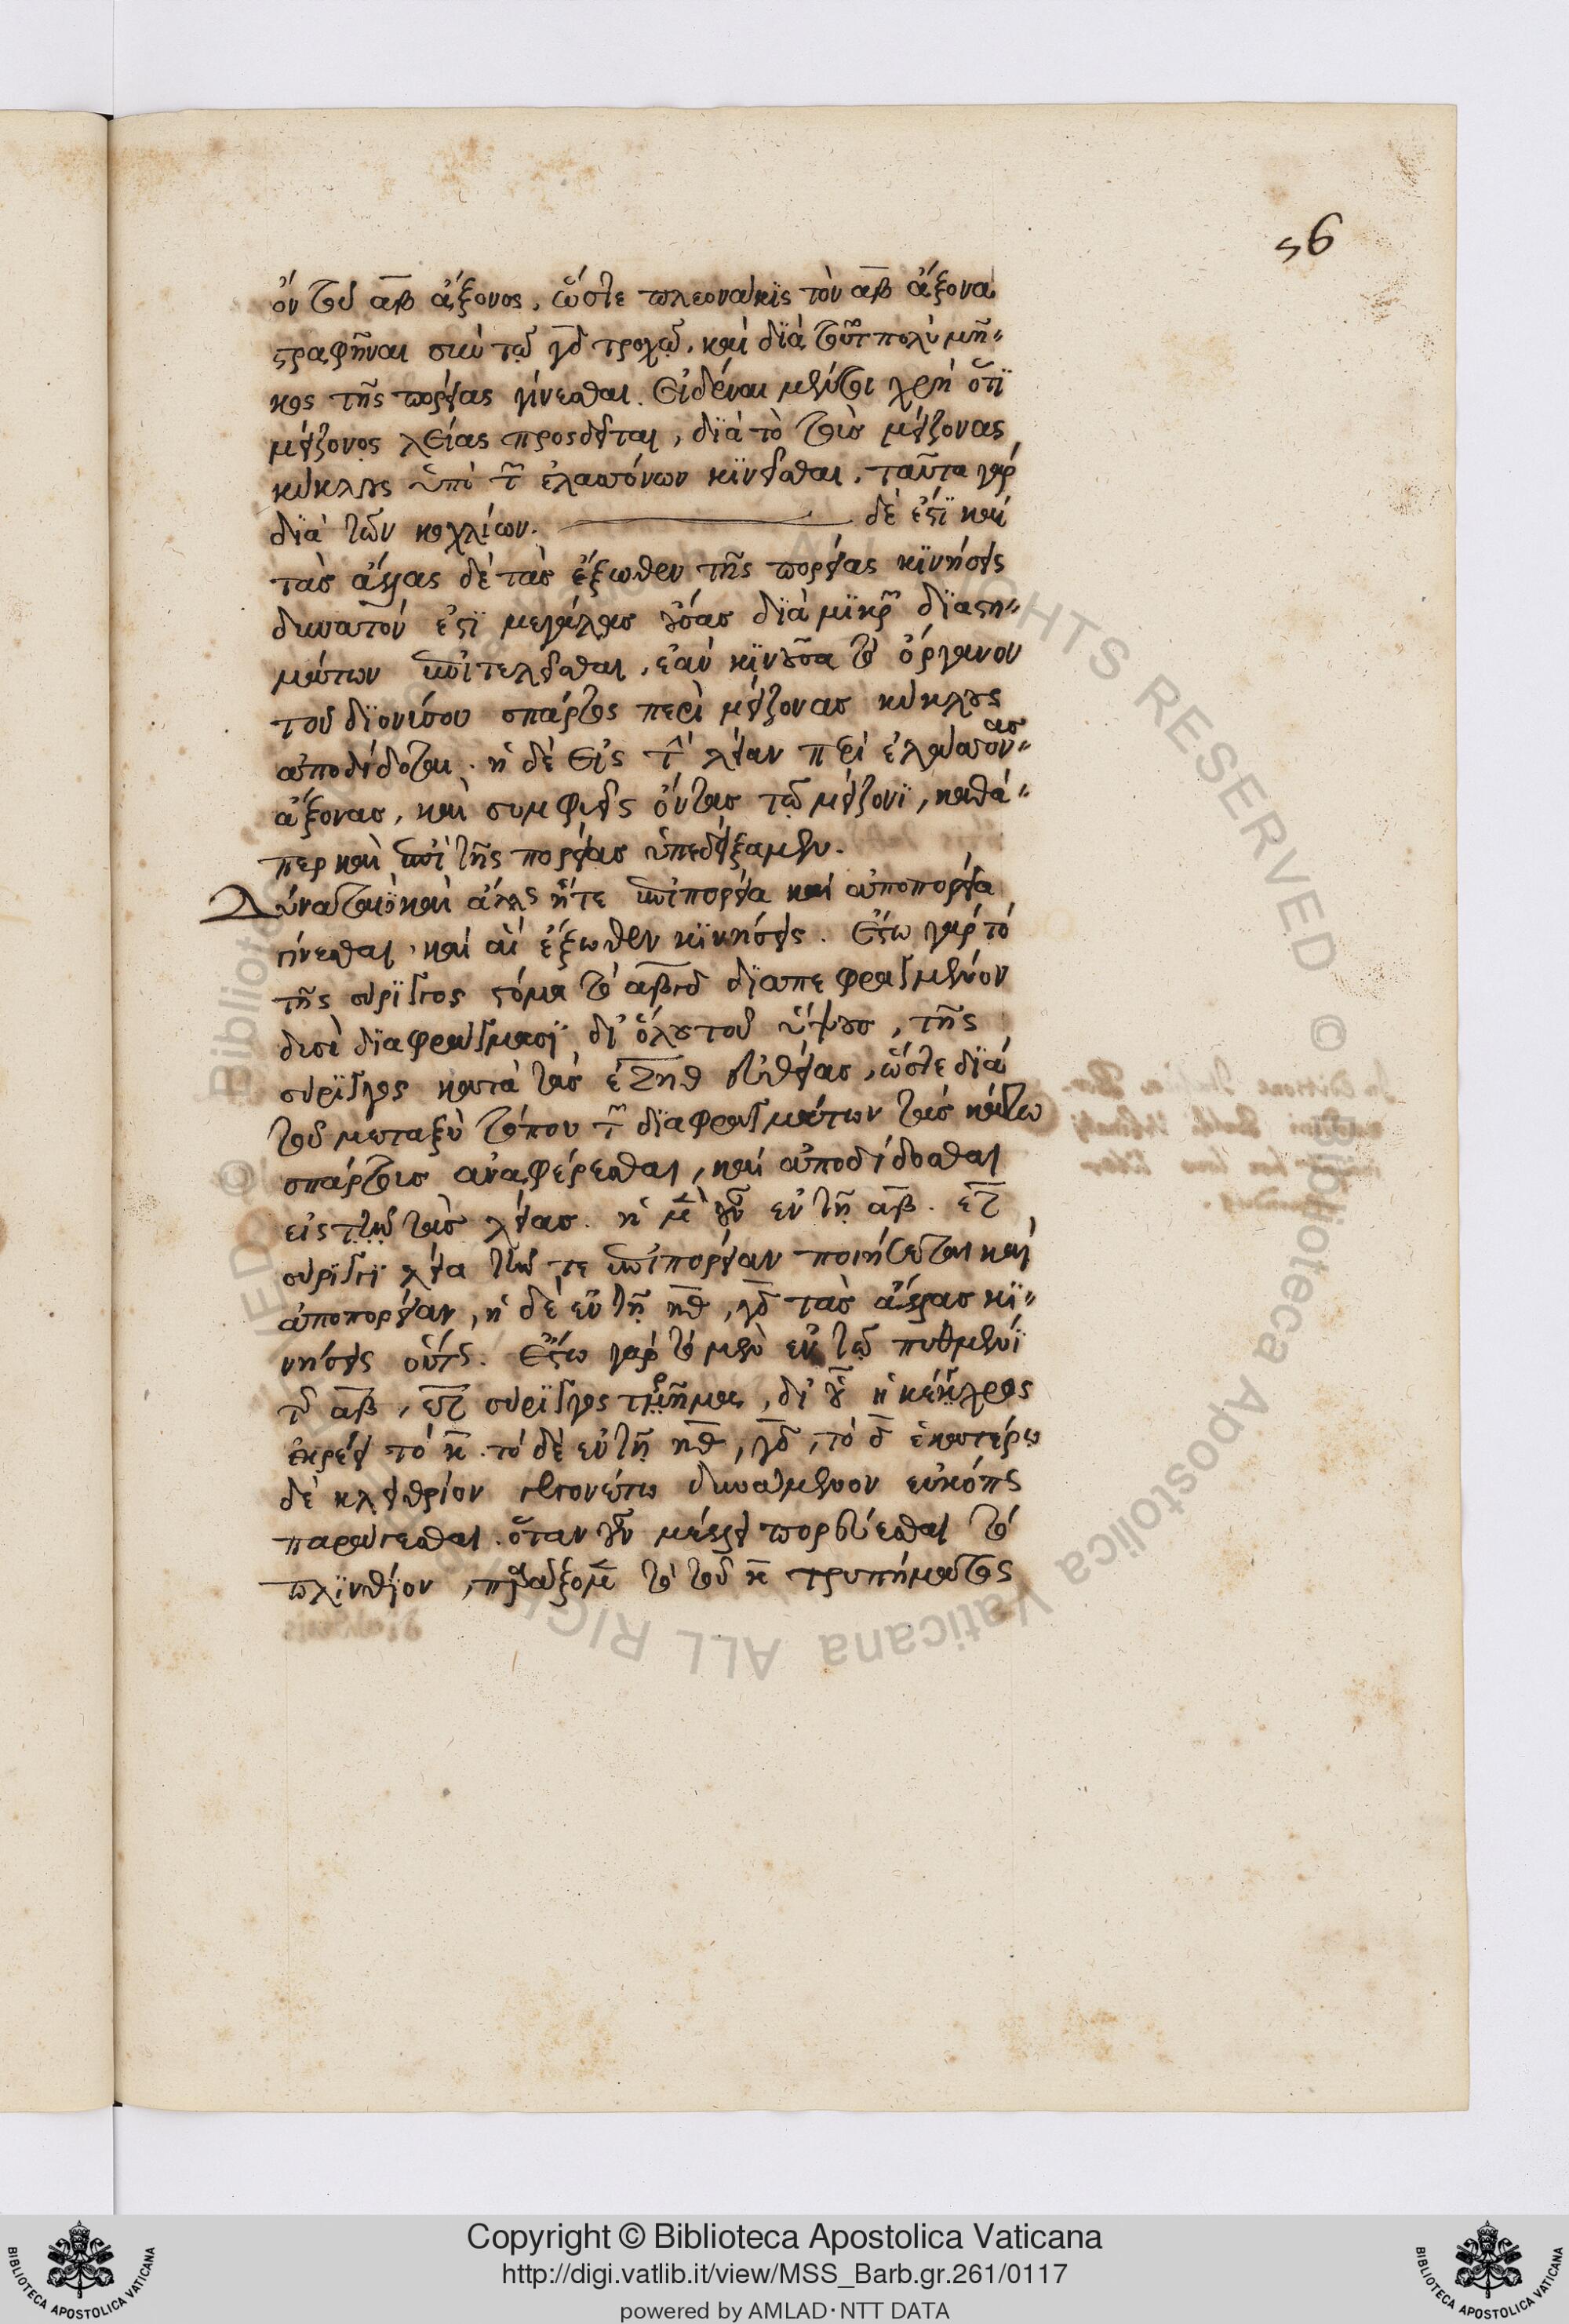 56
ὸν τοῦ αβ ἄξονος, ὥστε πλεονάκις τὸν αβ ἄξονα
στραφῆναι σὺν τῷ γδ τροχῷ, καὶ διὰ τοῦτο πολὺ μῆ-
κος τῆς πορείας γίνεσθαι. Εἰδέναι μέντοι χρὴ ὅτι
μείζονος χείας προσδεῖται, διὰ τὸ τοὺς μείζονας
κύκλους ὑπὸ τῶν ἐλασσόνων κινεῖσθαι. ταῦτα γὰρ
διὰ τῶν κοχλίων. δέ ἐστι καὶ
τὰς ἄλλας δὲ τὰς ἔξωθεν τῆς πορείας κινήσεις
δυνατόν ἐστι μεγάλας οὔσας διὰ μικρῶν διαστη-
μάτων ἐπιτελεῖσθαι, ἐὰν κινοῦσα τὸ ὄργανον
τοῦ διονύσου σπάρτος περὶ μείζονας κύκλους
ἀποδίδοται. ἡ δὲ εἰς τὴν λείαν περὶ ἐλάσσονας
ἄξονας, καὶ συμφυεῖς ὄντας τῷ μείζονι, καθά-
περ καὶ ἐπὶ τῆς πορείας ὑπεδείξαμεν.
Δύναται καὶ ἄλλως ἥτε ἐπιπορεία καὶ ἀποπορεία
γίνεσθαι, καὶ αἱ ἔξωθεν κινήσεις. Ἔστω γὰρ τὸ
τῆς σύριγγος στόμα τὸ αβγδ διαπεφραγμένον
δυσὶ διαφράγμασι δι' ὅλου τοῦ ὕψους, τῆς
σύριγγος κατὰ τὰς εζηθ εὐθείας, ὥστε διὰ
τοῦ μεταξὺ τόπου τῶν διαφραγμάτων τὰς κάτω
σπάρτους ἀναφέρεσθαι, καὶ ἀποδίδοσθαι
εἰς τὴν τὰς λείας. ἡ μὲν οὖν ἐν τῇ αβ. εζ
σύριγγι λεία τήν τε ἐπιπορείαν ποιήσεται καὶ
ἀποπορείαν, ἡ δὲ ἐν τῇ ηθ, γδ τὰς ἄλλας κι-
νήσεις οὕτως. Ἔστω γὰρ τὸ μὲν ἐν τῷ πυθμένι
τῆς αβ, εζ σύριγγος τρῆμα, δι' οὗ ἡ κέγχρος
ἐκρεῖ τὸ κ. τὸ δὲ ἐν τῇ ηθ, γδ, τὸ δ ἑκατέρῳ
δὲ κλειθρίον γεγονέτω δυνάμενον εὐκόπως
παράγεσθαι. ὅταν οὖν μέλλῃ πορεύεσθαι τὸ
πλινθίον, παράξομεν τὸ τοῦ κ τρυπήματος
Copyright © Biblioteca Apostolica Vaticana
http://digi.vatlib.it/view/MSS_Barb.gr.261/0117
powered by AMLAD·NTT DATA
BIBLIOTECA APOSTOLICA VATICANA
BIBLIOTECA APOSTOLICA VATICANA